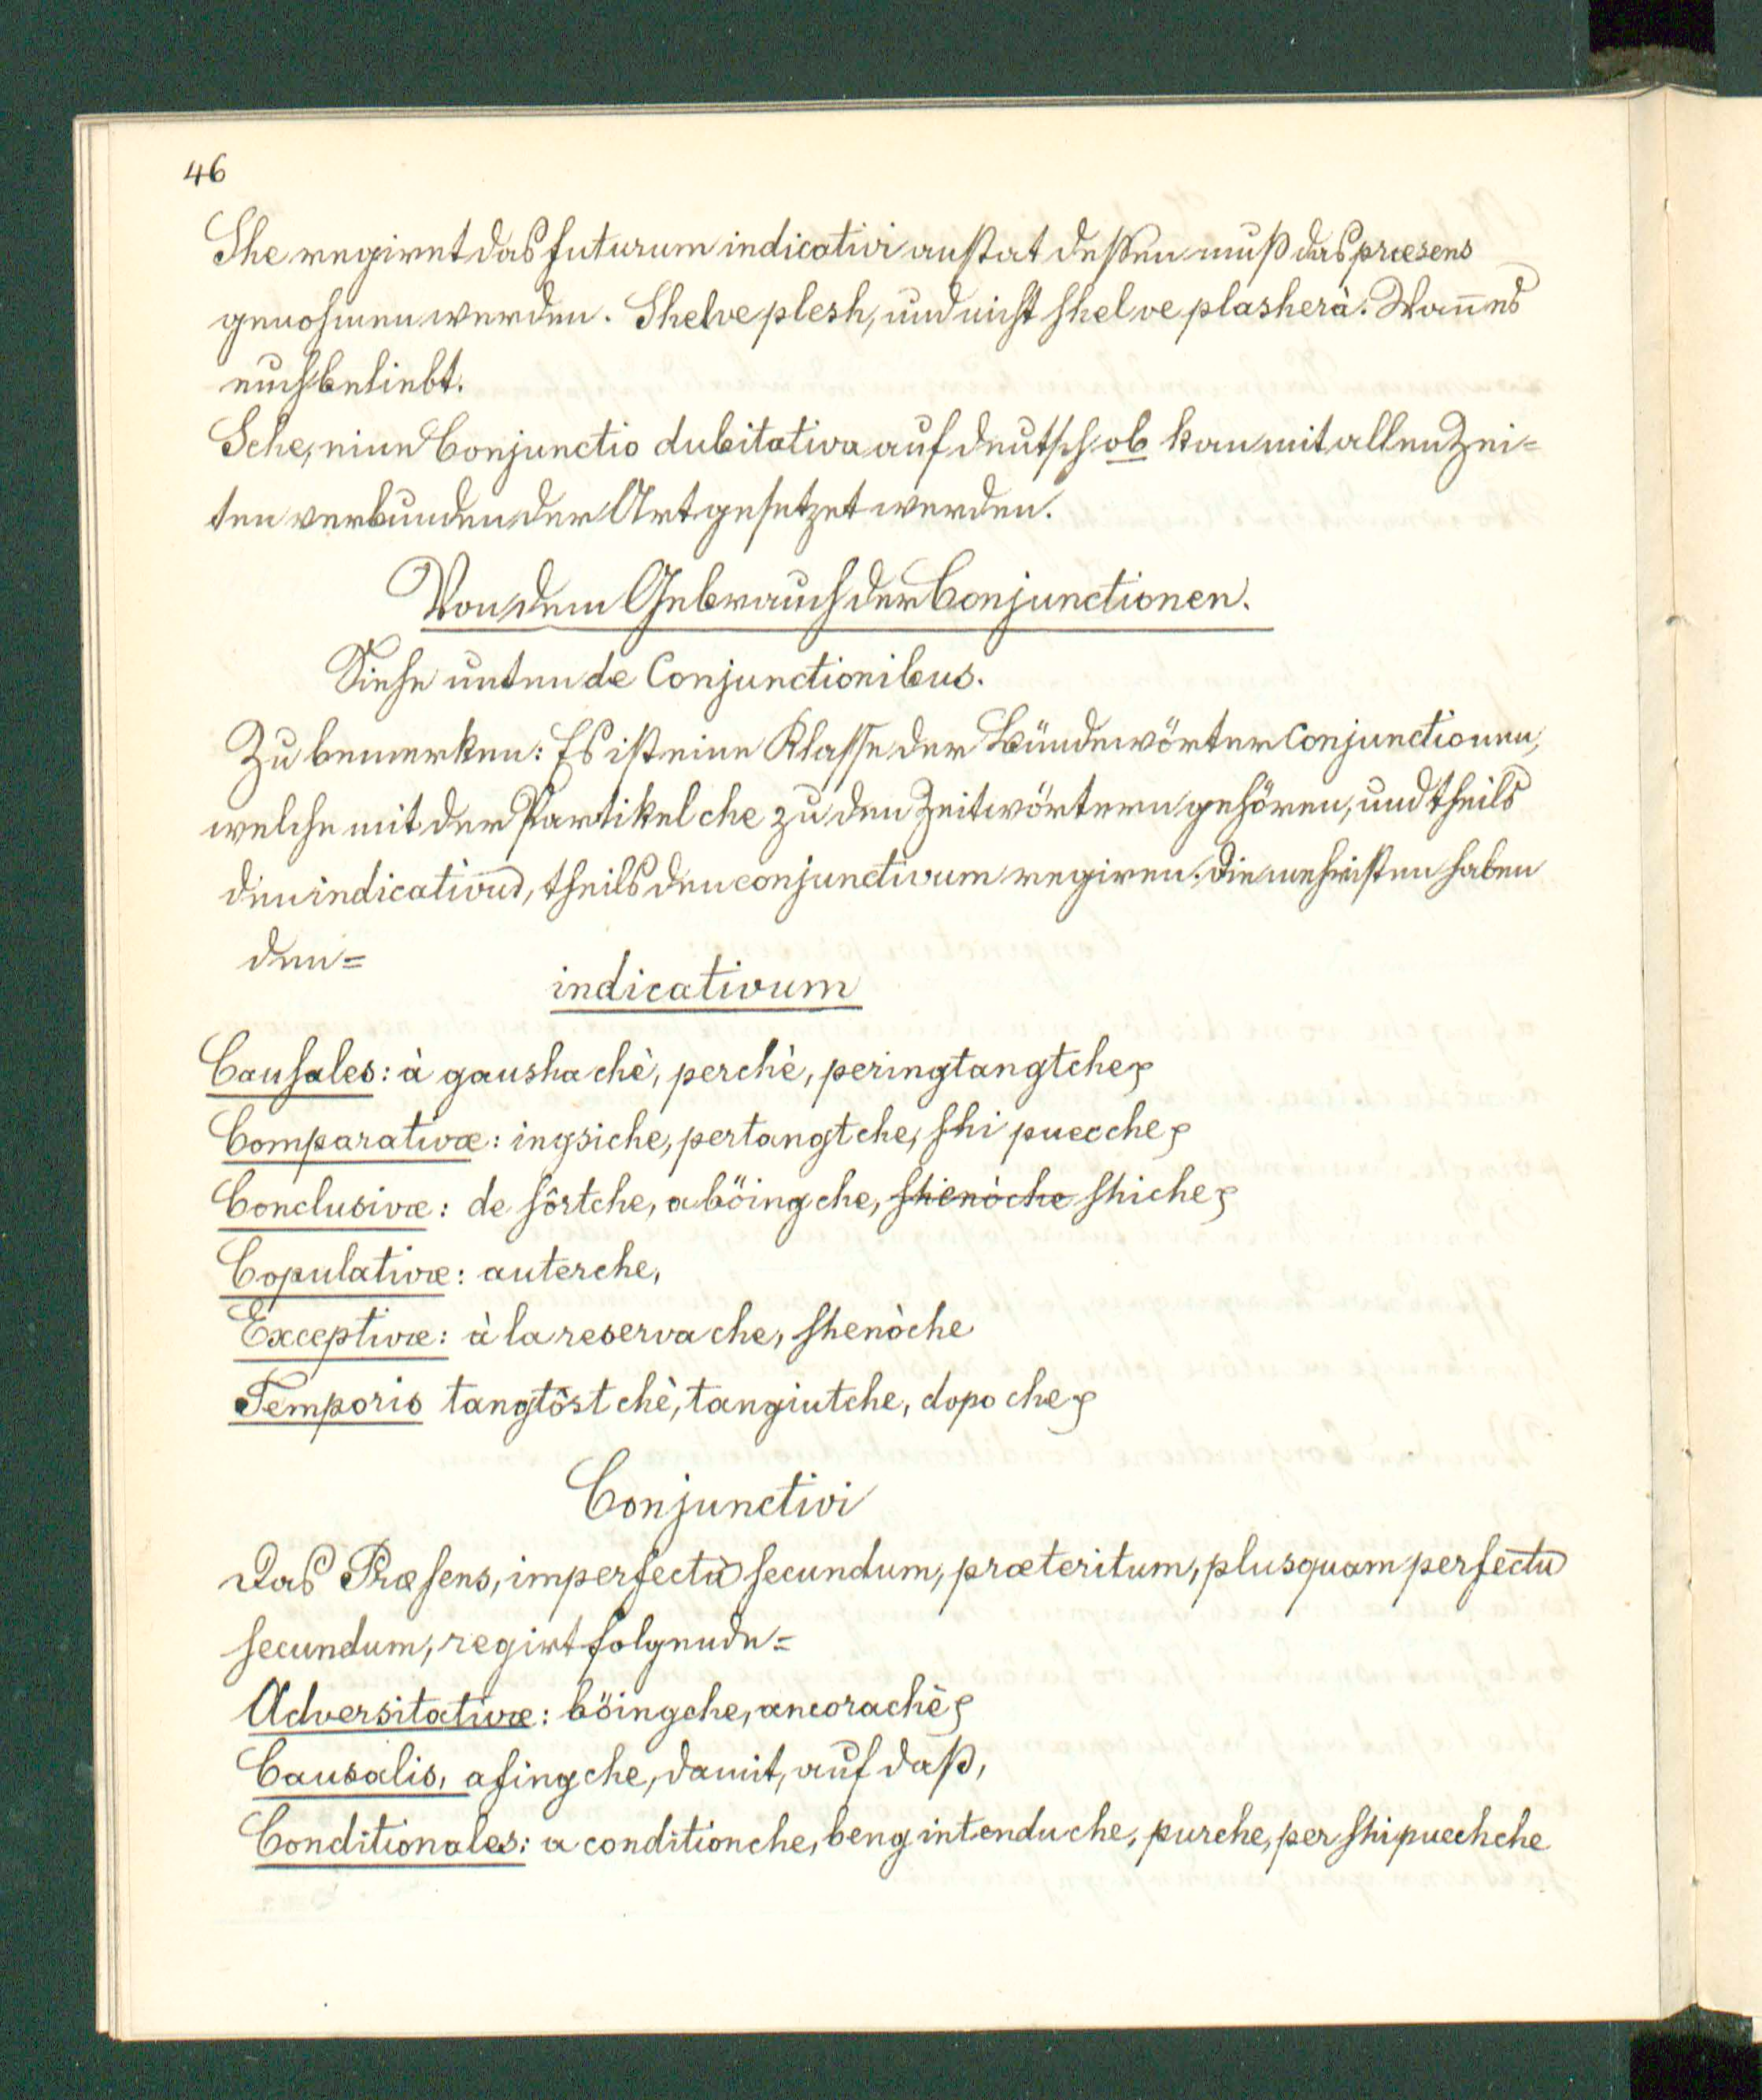 46
She regiret das futurum indicativi anstat deßen muß das præsens
genohmen werden. Shelve plesh, und nicht shel ve plasherà. Wan̄ es
euch beliebt.
Sche, eine Conjunctio dubitativa auf deutsch ob kan mit allen Zei=
ten verbunden der Art gesetzet werden.
Von dem Gebrauch der Conjunctionen.
Siehe unten de Conjunctionibus.
Zu bemerken: Es ist eine Klasse der Bündewörter Conjunctionen,
welche mit der Partikel che zu den Zeitwörtern gehören, und theils
den indicativũ, theils den conjunctivum regiren. Die mehristen haben
den=
indicativum
Causales: à gausha chè, perchè, peringtangtche
Comparativæ: ingsiche, pertangtche, shi puecche
Conclusivæ: de sôrtche, aböingche, shenòche shiche
Copulativæ: auterche,
Exceptivæ: à la reserva che, shenòche
Temporis tangtôst chè, tangiutche, dopo che
Conjunctivi
Das Præsens, imperfectũ secundum, præteritum, plusquam perfectũ
secundum, regirt folgende=
Adversitativæ: böingche, ancorachè
Causalis, afingche, damit, auf daß,
Conditionales: a conditionche, beng intenduche, purche, per shipuechche